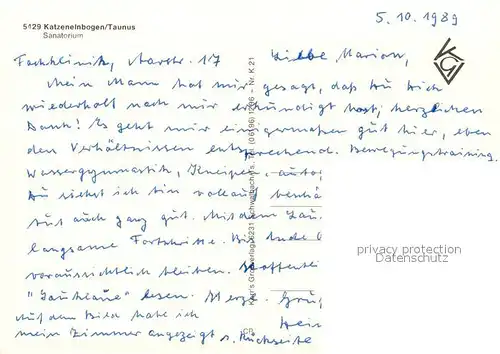 5429 Katzenelnbogen/Taunus
Sanatorium
5.10.1989
Fachklinik, Aarstr. 17
Liebe Marion,
Mein Mann hat mir gesagt, daß Du Dich
wiederholt nach mir erkundigt hast, herzlichen
Dank! Es geht mir einigermaßen gut hier, eben
den Verhältnissen entsprechend. Bewegungstraining
Wassergymnastik, Kneipen, autog
Du siehst ich bin vollauf beschä
tut auch ganz gut. Mit dem
langsame Fortschritte. Bis Ende
voraussichtlich bleiben. Hoffentli
lesen. Herzl. Grüß
Auf dem Bild habe ich
mein Zimmer angezeigt s. Rückseite
privacy protection
DATENSCHUTZ